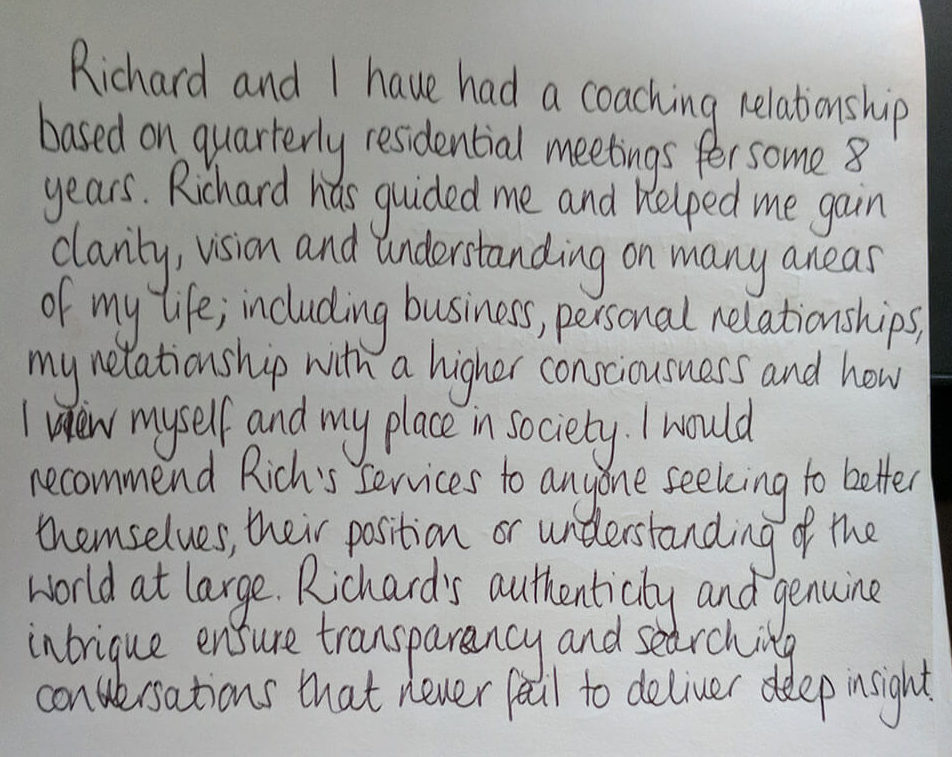 Richard and I have had a coaching relationship
based on quarterly residential meetings for some 8
years. Richard has guided me and helped me gain
clarity, vision and understanding on many areas
of my life; including business, personal relationships,
my relationship with a higher consciousness and how
I view myself and my place in society. I would
recommend Rich's services to anyone seeking to better
themselves, their position or understanding of the
world at large. Richard's authenticity and genuine
intrigue ensure transparency and searching
conversations that never fail to deliver deep insight.